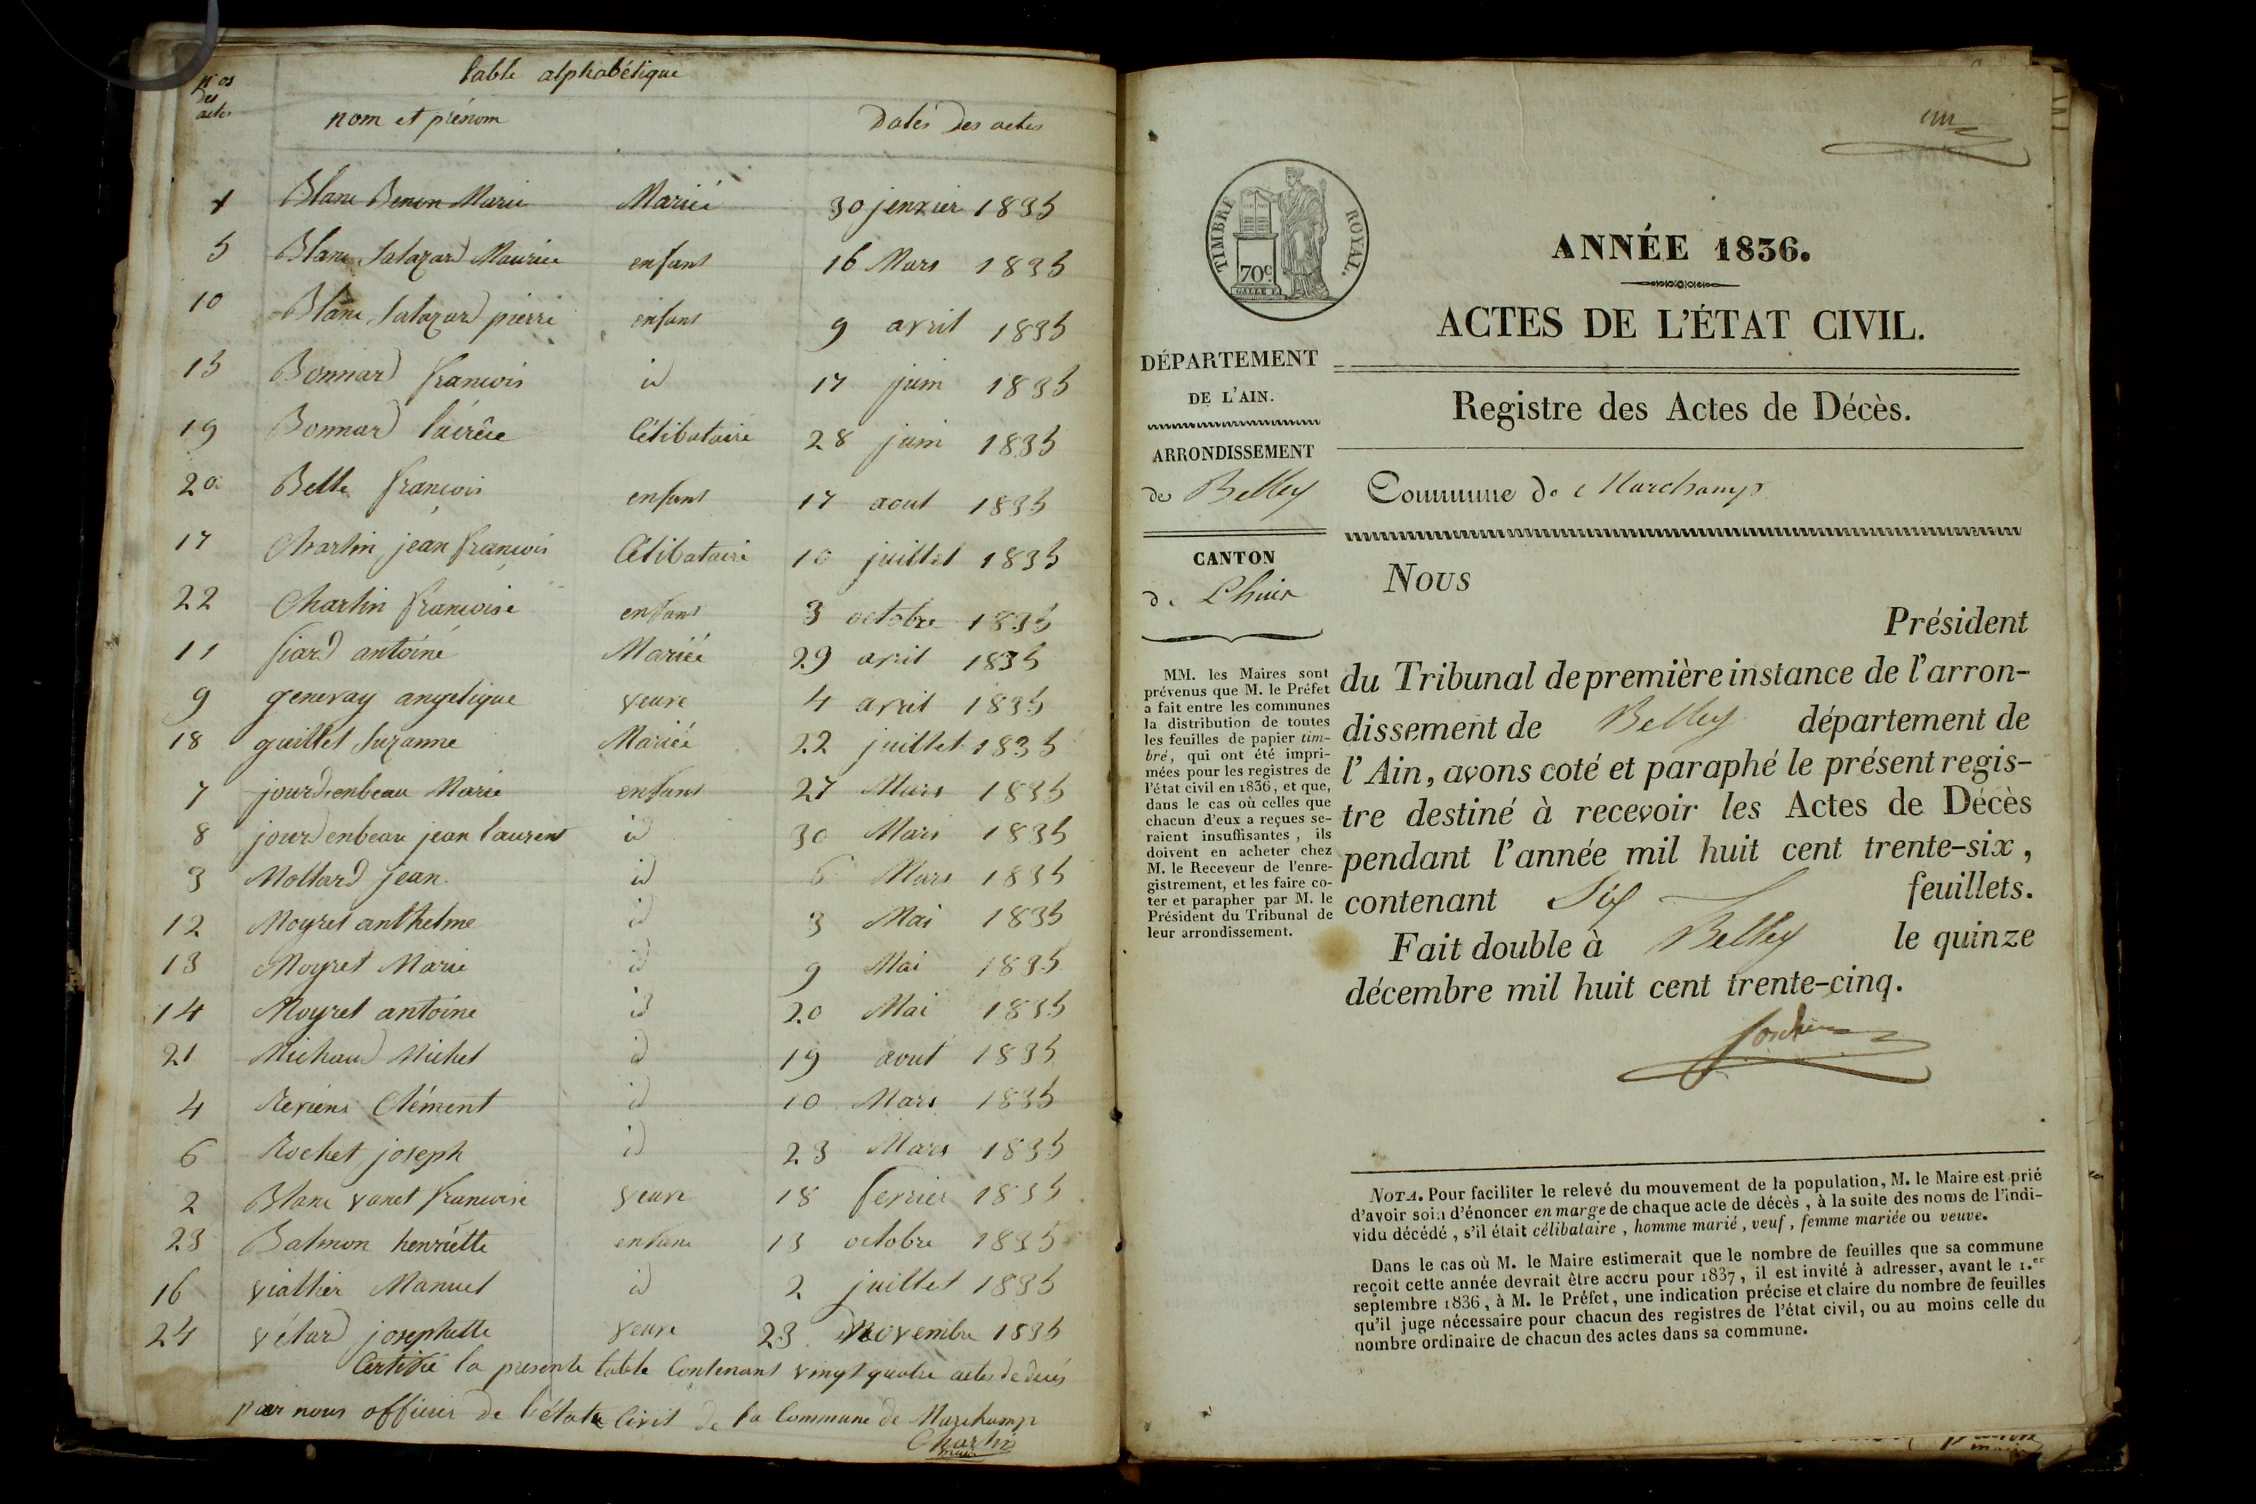 nos
des
actes
table alphabétique
nom et prénom
Datés des actes
1 Blanc Benon Marie Mariée 30 jenvier 1835
5 Blanc Salazard Maurice enfant 16 Mars 1835
10 Blanc Salazard pierre enfant 9 avril 1835
15 Bonnard francois id 17 juin 1835
19 Bonnard Célibataire 28 juin 1835
20 Bette françois enfant 17 aout 1835
17 Chartin jean françois Célibataire 10 juillet 1835
22 Chartin françoise enfant 3 octobre 1835
11 fiard antoine Mariée 29 avril 1835
9 genevay angelique veuve 4 avril 1835
18 guillet Suzanne Mariée 22 juillet 1835
7 jourdenbeau Marie enfant 27 Mars 1835
8 jourdenbeau jean laurent id 30 Mars 1835
3 Mollard jean id 6 Mars 1835
12 Moyret anthelme id 3 Mai 1835
13 Moyret Marie id 9 Mai 1835
14 Moyret antoine id 20 Mai 1835
21 Michaud Michel id 19 aout 1835
4 Clément id 10 Mars 1835
6 Rochet joseph id 23 Mars 1835
2 Blanc vanet francoise veuve 18 fevrier 1835
23 Balmon henriétte enfant 13 octobre 1835
16 viallier Manuel id 2 juillet 1835
24 vétard josephette veuve 23 Novembre 1835
Certifié la presente table Contenant vingt quatre actes de decés
par nous officier de l'état Civil de la Commune de Marchamp
Chartin
maire
un
TIMBRE ROYAL.
70c.
GALLE F.
ANNÉE 1836.
ACTES DE L'ÉTAT CIVIL.
Registre des Actes de Décès.
Commune de Marchamp
DÉPARTEMENT
DE L'AIN.
ARRONDISSEMENT
de Belley
CANTON
de Lhuis
MM. les Maires sont
prévenus que M. le Préfet
a fait entre les communes
la distribution de toutes
les feuilles de papier tim-
bré, qui ont été impri-
mées pour les registres de
l'état civil en 1836, et que,
dans le cas où celles que
chacun d'eux a reçues se-
raient insuffisantes, ils
doivent en acheter chez
M. le Receveur de l'enre-
gistrement, et les faire co-
ter et parapher par M. le
Président du Tribunal de
leur arrondissement.
Nous
Président
du Tribunal de première instance de l'arron-
dissement de Belley département de
l'Ain, avons coté et paraphé le présent regis-
tre destiné à recevoir les Actes de Décès
pendant l'année mil huit cent trente-six,
contenant Six feuillets.
Fait double à Belley le quinze
décembre mil huit cent trente-cinq.
NOTA. Pour faciliter le relevé du mouvement de la population, M. le Maire est prié
d'avoir soin d'énoncer en marge de chaque acte de décès, à la suite des noms de l'indi-
vidu décédé, s'il était célibataire, homme marié, veuf, femme mariée ou veuve.
Dans le cas où M. le Maire estimerait que le nombre de feuilles que sa commune
reçoit cette année devrait être accru pour 1837, il est invité à adresser, avant le 1.er
septembre 1836, à M. le Préfet, une indication précise et claire du nombre de feuilles
qu'il juge nécessaire pour chacun des registres de l'état civil, ou au moins celle du
nombre ordinaire de chacun des actes dans sa commune.